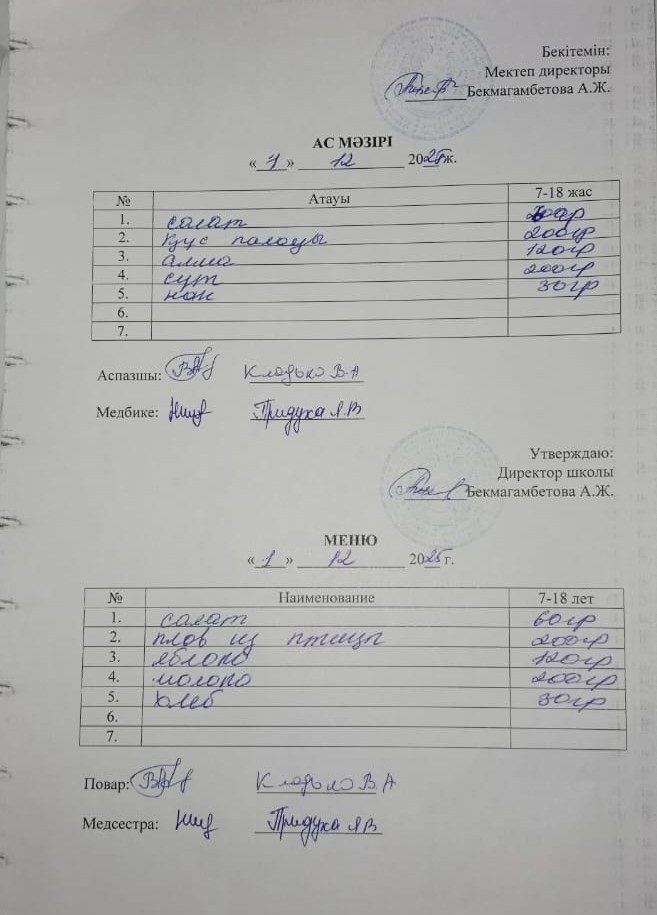 Бекітемін:
Мектеп директоры
Бекмагамбетова А.Ж.
АС МӘЗІРІ
«1» 12 2025ж.
№ Атауы 7-18 жас
1. салат
2. Құс палауы 200гр
3. алма 120гр
4. сүт 200гр
5. нан 30гр
6.
7.
Аспазшы: Кладько В.А
Медбике: Придуха Я.В
Утверждаю:
Директор школы
Бекмагамбетова А.Ж.
МЕНЮ
«1» 12 2025 г.
№ Наименование 7-18 лет
1. салат 60гр
2. плов из птицы 200гр
3. яблоко 120гр
4. молоко 200гр
5. хлеб 30гр
6.
7.
Повар: Кладько В.А
Медсестра: Придуха Я.В